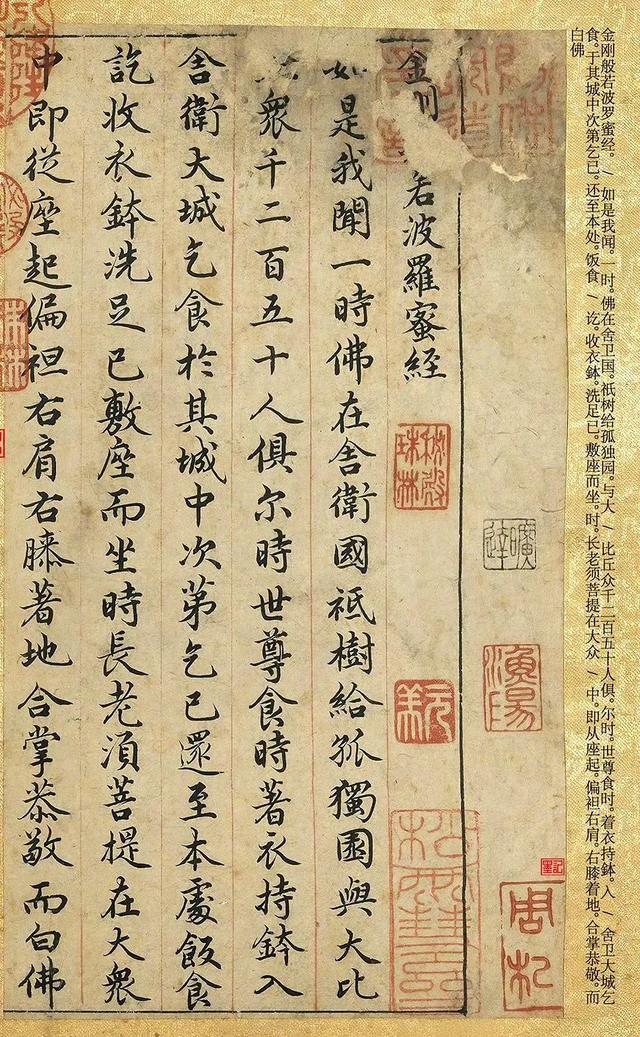 金刚般若波罗蜜经。/ 如是我闻。一时。佛在舍卫国。祇树给孤独园。与大 / 比丘众千二百五十人俱。尔时。世尊食时。着衣持鉢。入 / 舍卫大城乞
食。于其城中次第乞已。还至本处。饭食 / 讫。收衣鉢。洗足已。敷座而坐。时。长老须菩提在大众 / 中。即从座起。偏袒右肩。右膝着地。合掌恭敬。而
白佛
漁陽
金 若波羅蜜經
秘殿珠林
如是我聞一時佛在舍衛國祇樹給孤獨園與大比
眾千二百五十人俱尔時世尊食時著衣持鉢入
舍衛大城乞食於其城中次第乞已還至本處飯食
訖收衣鉢洗足已敷座而坐時長老須菩提在大眾
中即從座起偏袒右肩右膝著地合掌恭敬而白佛